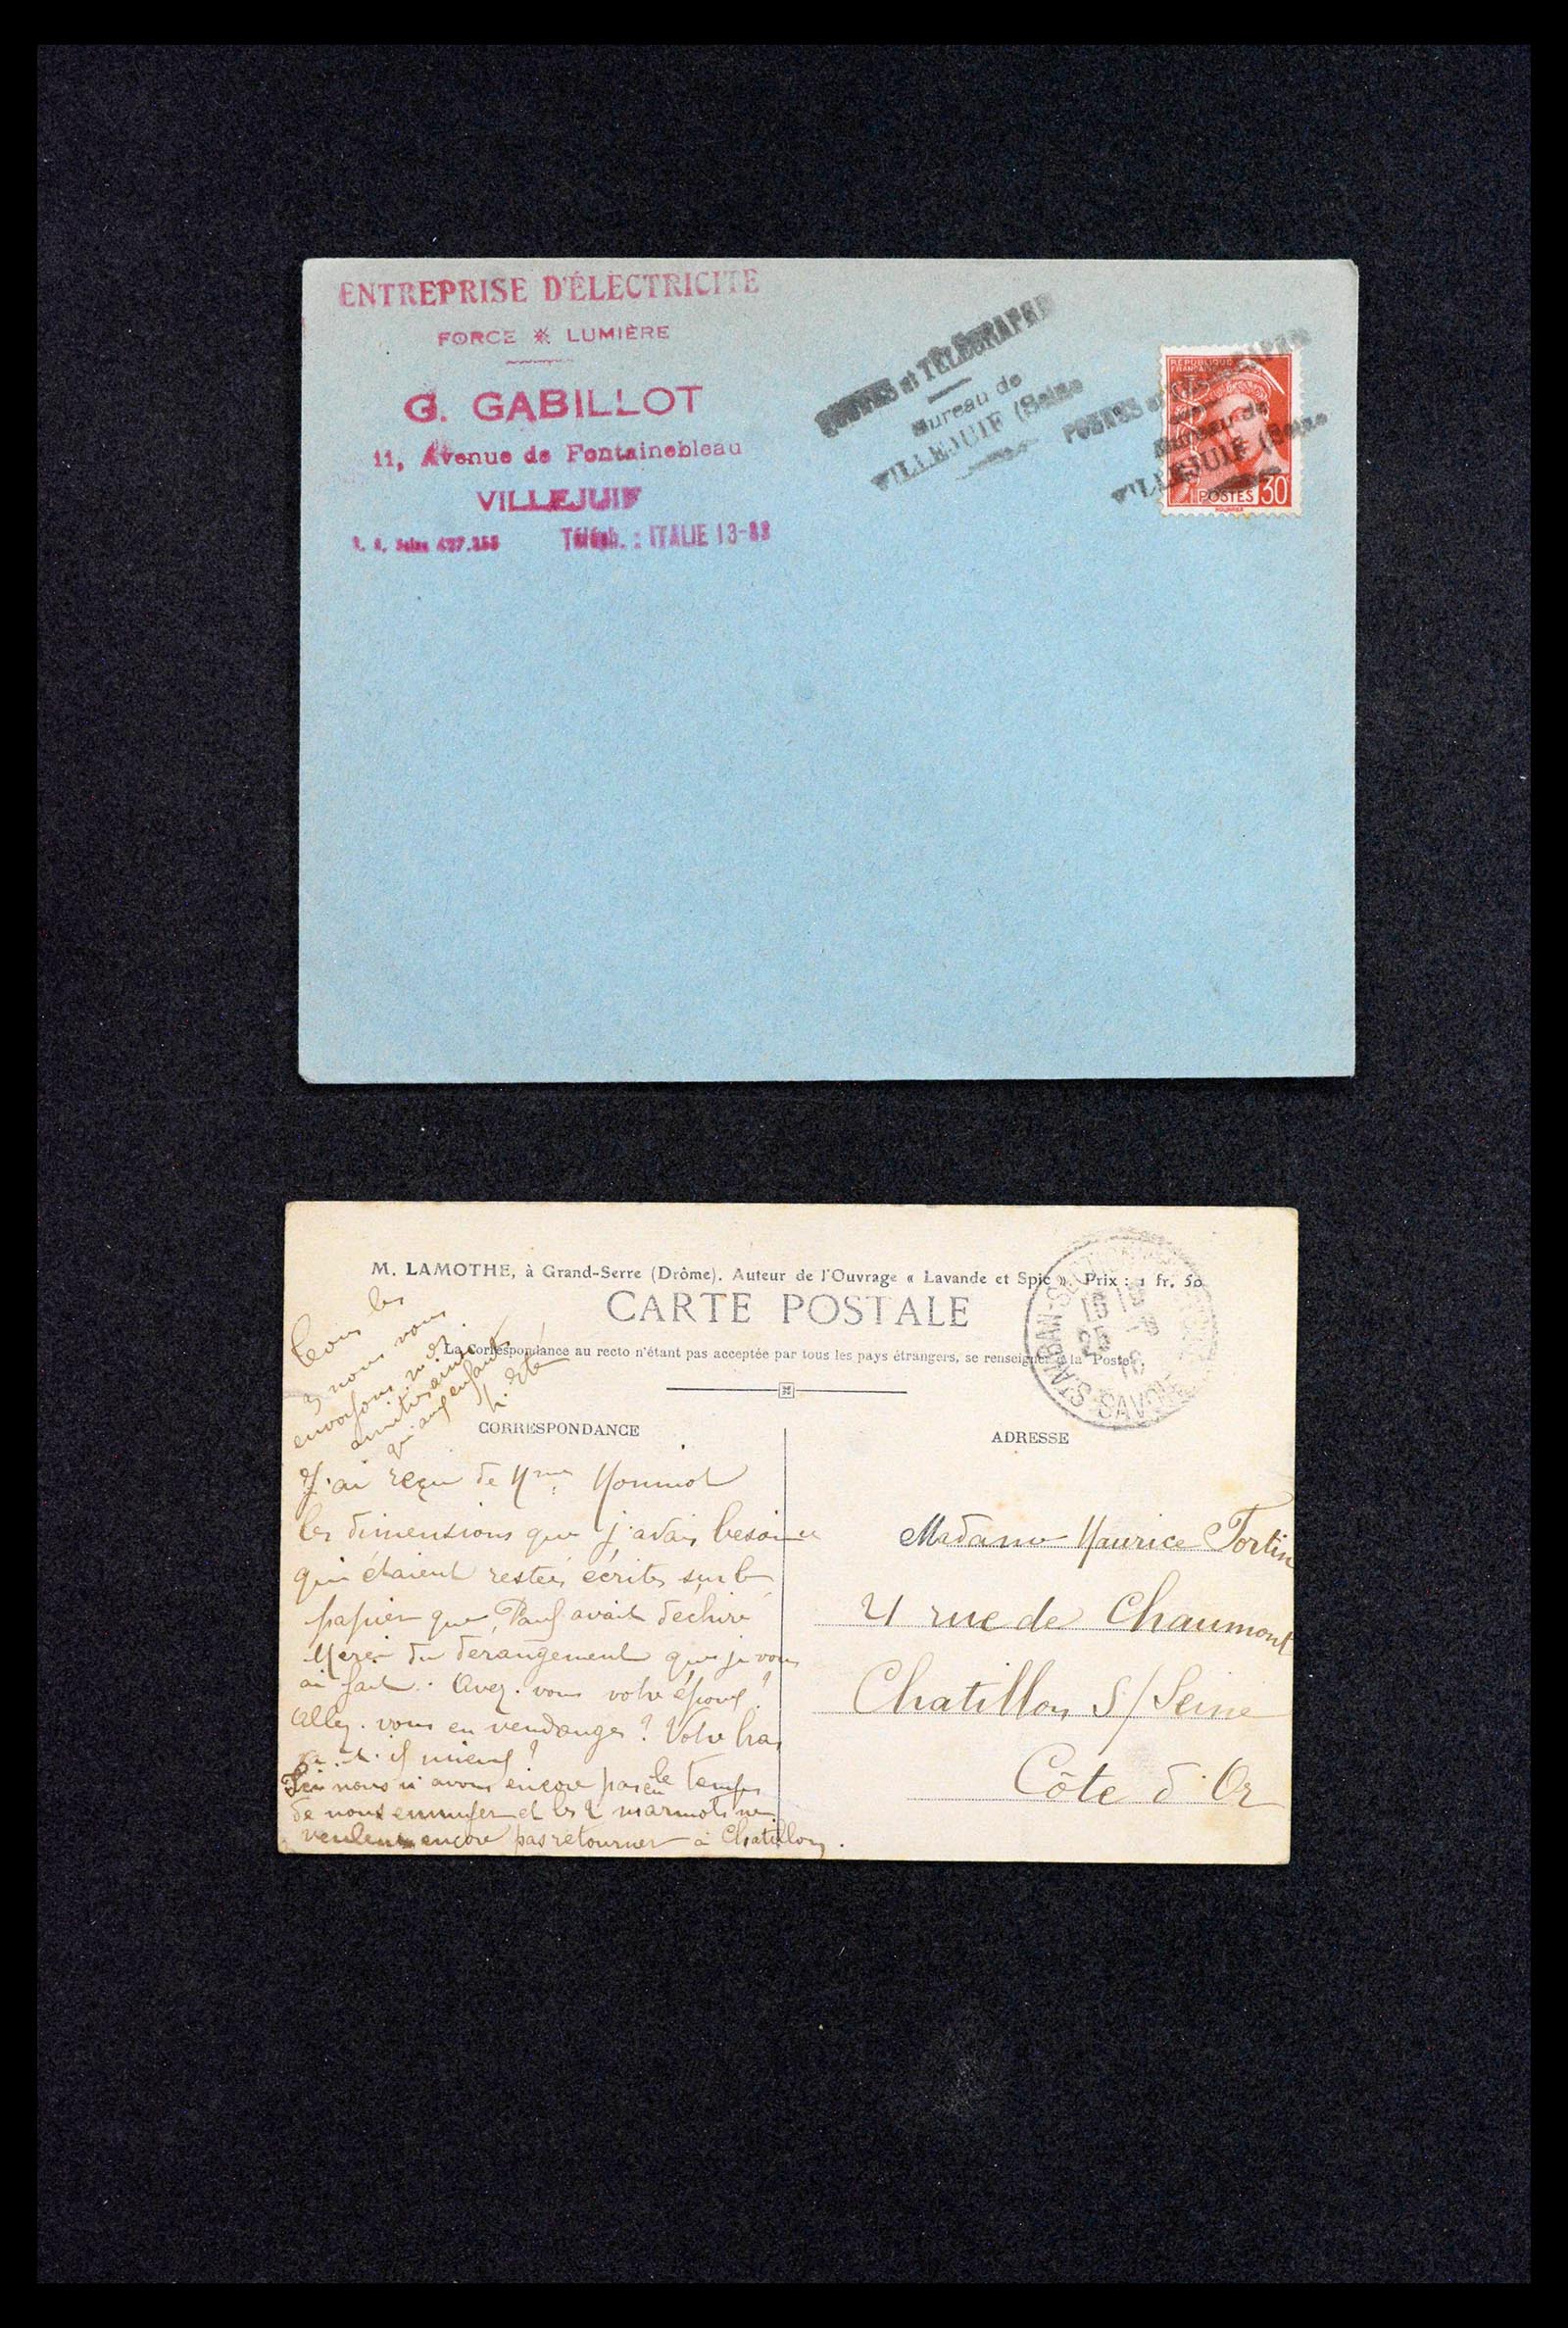 ENTREPRISE D'ÉLECTRICITE
FORCE * LUMIÈRE
G. GABILLOT
11, Avenue de Fontainebleau
VILLEJUIF
Seine 427.355 Téléph. : ITALIE 13-88
POSTES et TÉLÉGRAPHE
Bureau de
VILLEJUIF (Seine
POSTES et
Bureau de
VILLEJUIF (Seine
REPUBLIQUE
FRANÇAISE
POSTES 30c
M. LAMOTHE, à Grand-Serre (Drôme). Auteur de l'Ouvrage « Lavande et Spic ». Prix : 1 fr. 50
CARTE POSTALE
La Correspondance au recto n'étant pas acceptée par tous les pays étrangers, se renseigner à la Poste.
SAVOIE
Tous les
3 nous vous
envoyons nos
amitiés ainsi
qu'aux enfants
CORRESPONDANCE
ADRESSE
J'ai reçu de Mme Monniot
les dimensions que j'avais besoin et
qui étaient restées écrites sur le
papier que Paul avait dechiré
Merci du derangement que je vous
ai fait. Avez-vous votre époux ?
Allez-vous en vendanges ? Votre bras
va-t-il mieux ?
Ici nous n'avons encore pas eu le temps
de nous ennuyer et les 2 marmots ne
veulent encore pas retourner à Chatillon.
Madame Maurice Fortin
21 rue de Chaumont
Chatillon S/Seine
Côte d'Or